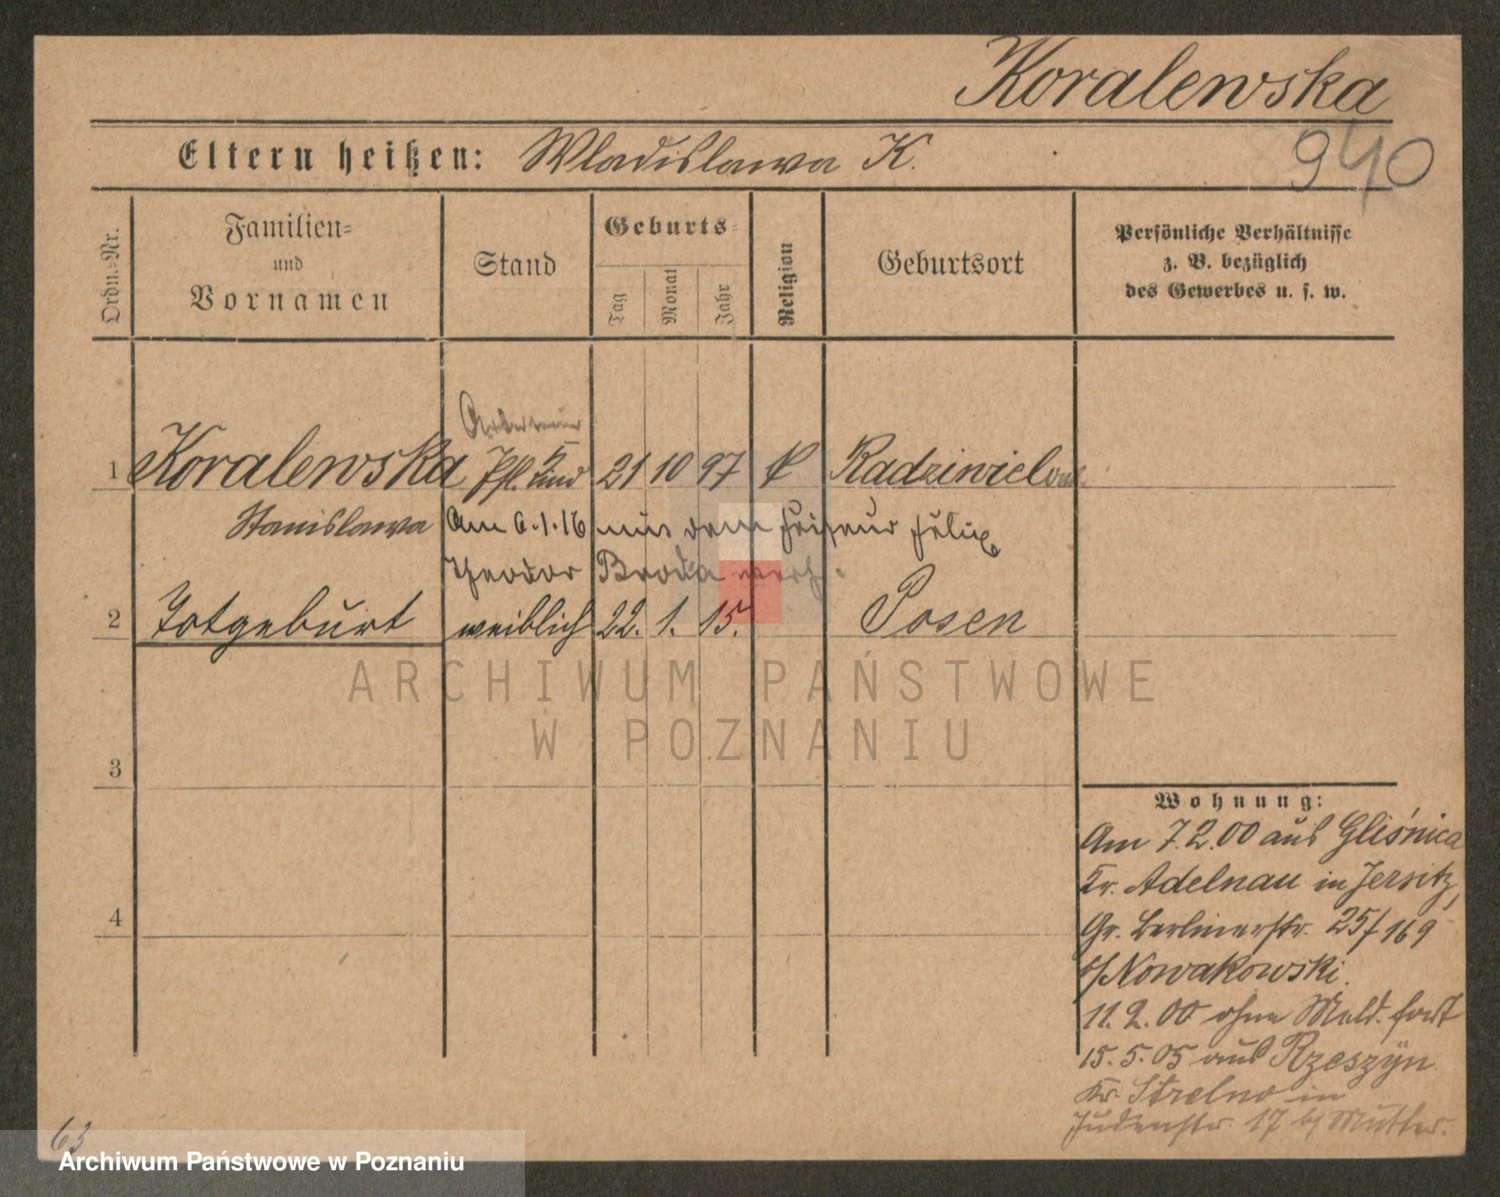 Koralewska
940
Eltern heißen: Wladislawa K.
Ordn.-Nr.
Familien-
und
Vornamen
Stand
Geburts-
Tag
Monat
Jahr
Religion
Geburtsort
Persönliche Verhältnisse
z. B. bezüglich
des Gewerbes u. s. w.
Arbeiterin
1 Koralewska Pfl. Kind 21 10 97 k Radziwiel
Stanislawa Am 6.1.16 mit dem Friseur Felix
Theodor Broda verh.
2 Totgeburt weiblich 22. 1. 15. Posen
ARCHIWUM PAŃSTWOWE
W POZNANIU
3
4
Wohnung:
Am 7.2.00 aus Gliśnica
Kr. Adelnau in Jersitz,
Gr. Berlinerstr. 25/169
b/Nowakowski.
11.2.00 ohne Meld. fort
15.5.05 aus Rzeszyn
Kr. Strelno in
Judenstr. 17 b/ Mutter.
63
Archiwum Państwowe w Poznaniu